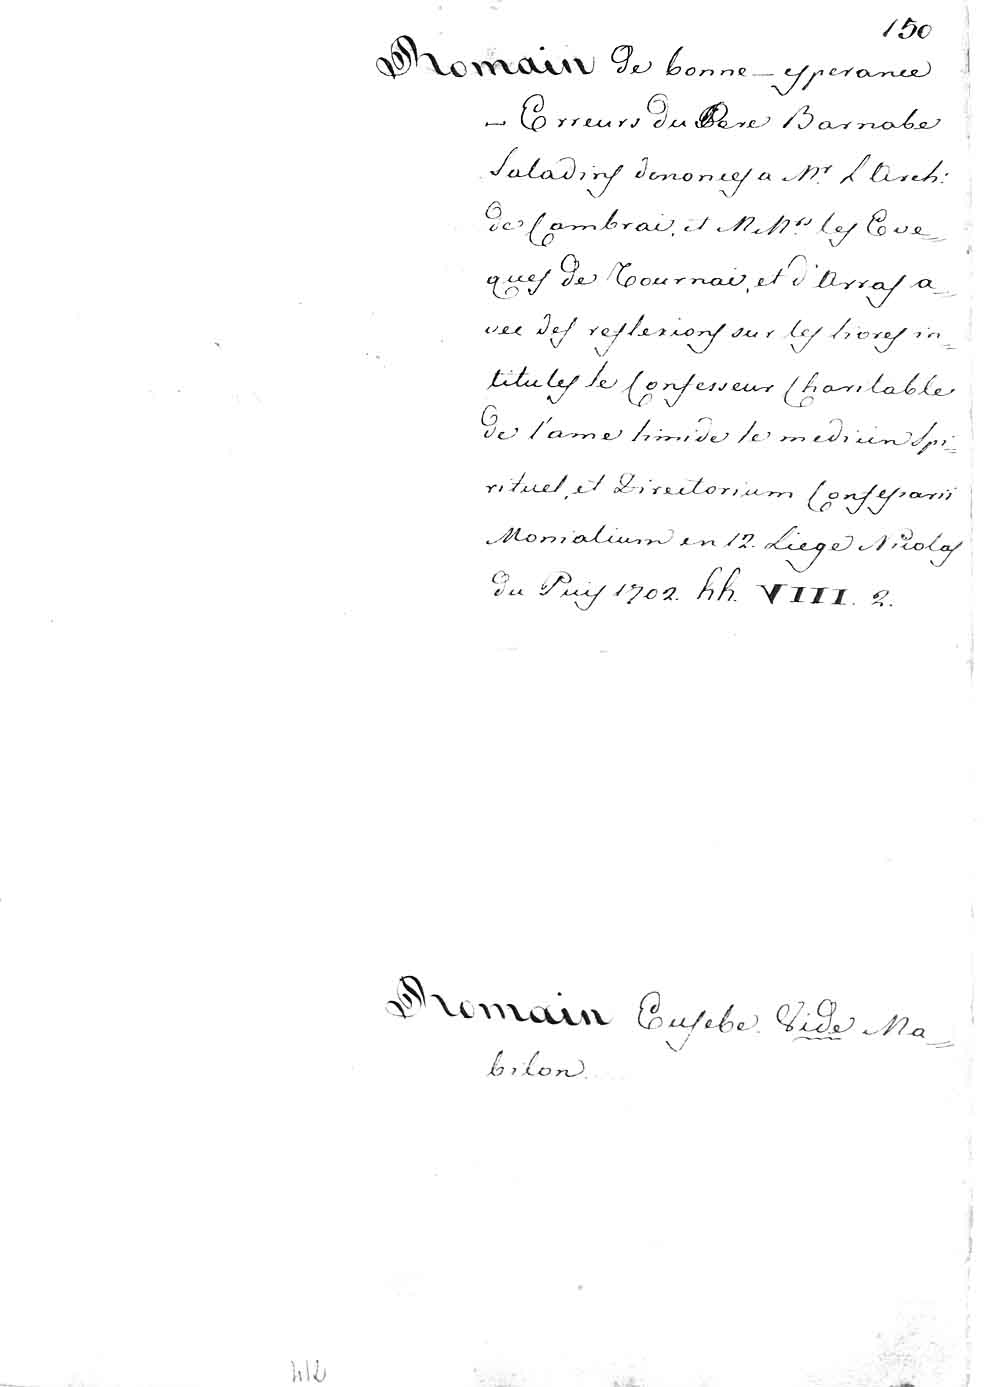 150
Romain de bonne-esperance
- Erreurs du Pere Barnabe
Saladins denonces a Mr. L'Arch:
de Cambrai, et MMrs les Eve=
ques de Tournai, et d'Arras a=
vec des reflexions sur les livres in=
titules le Confesseur Charitable
de l'ame timide le medicin Spi=
rituel, et Directorium Confessarii
Monialium en 12. Liege Nicolas
du Puis 1702. hh. VIII. 2.
Romain Eusebe. Vide Ma=
bilon.